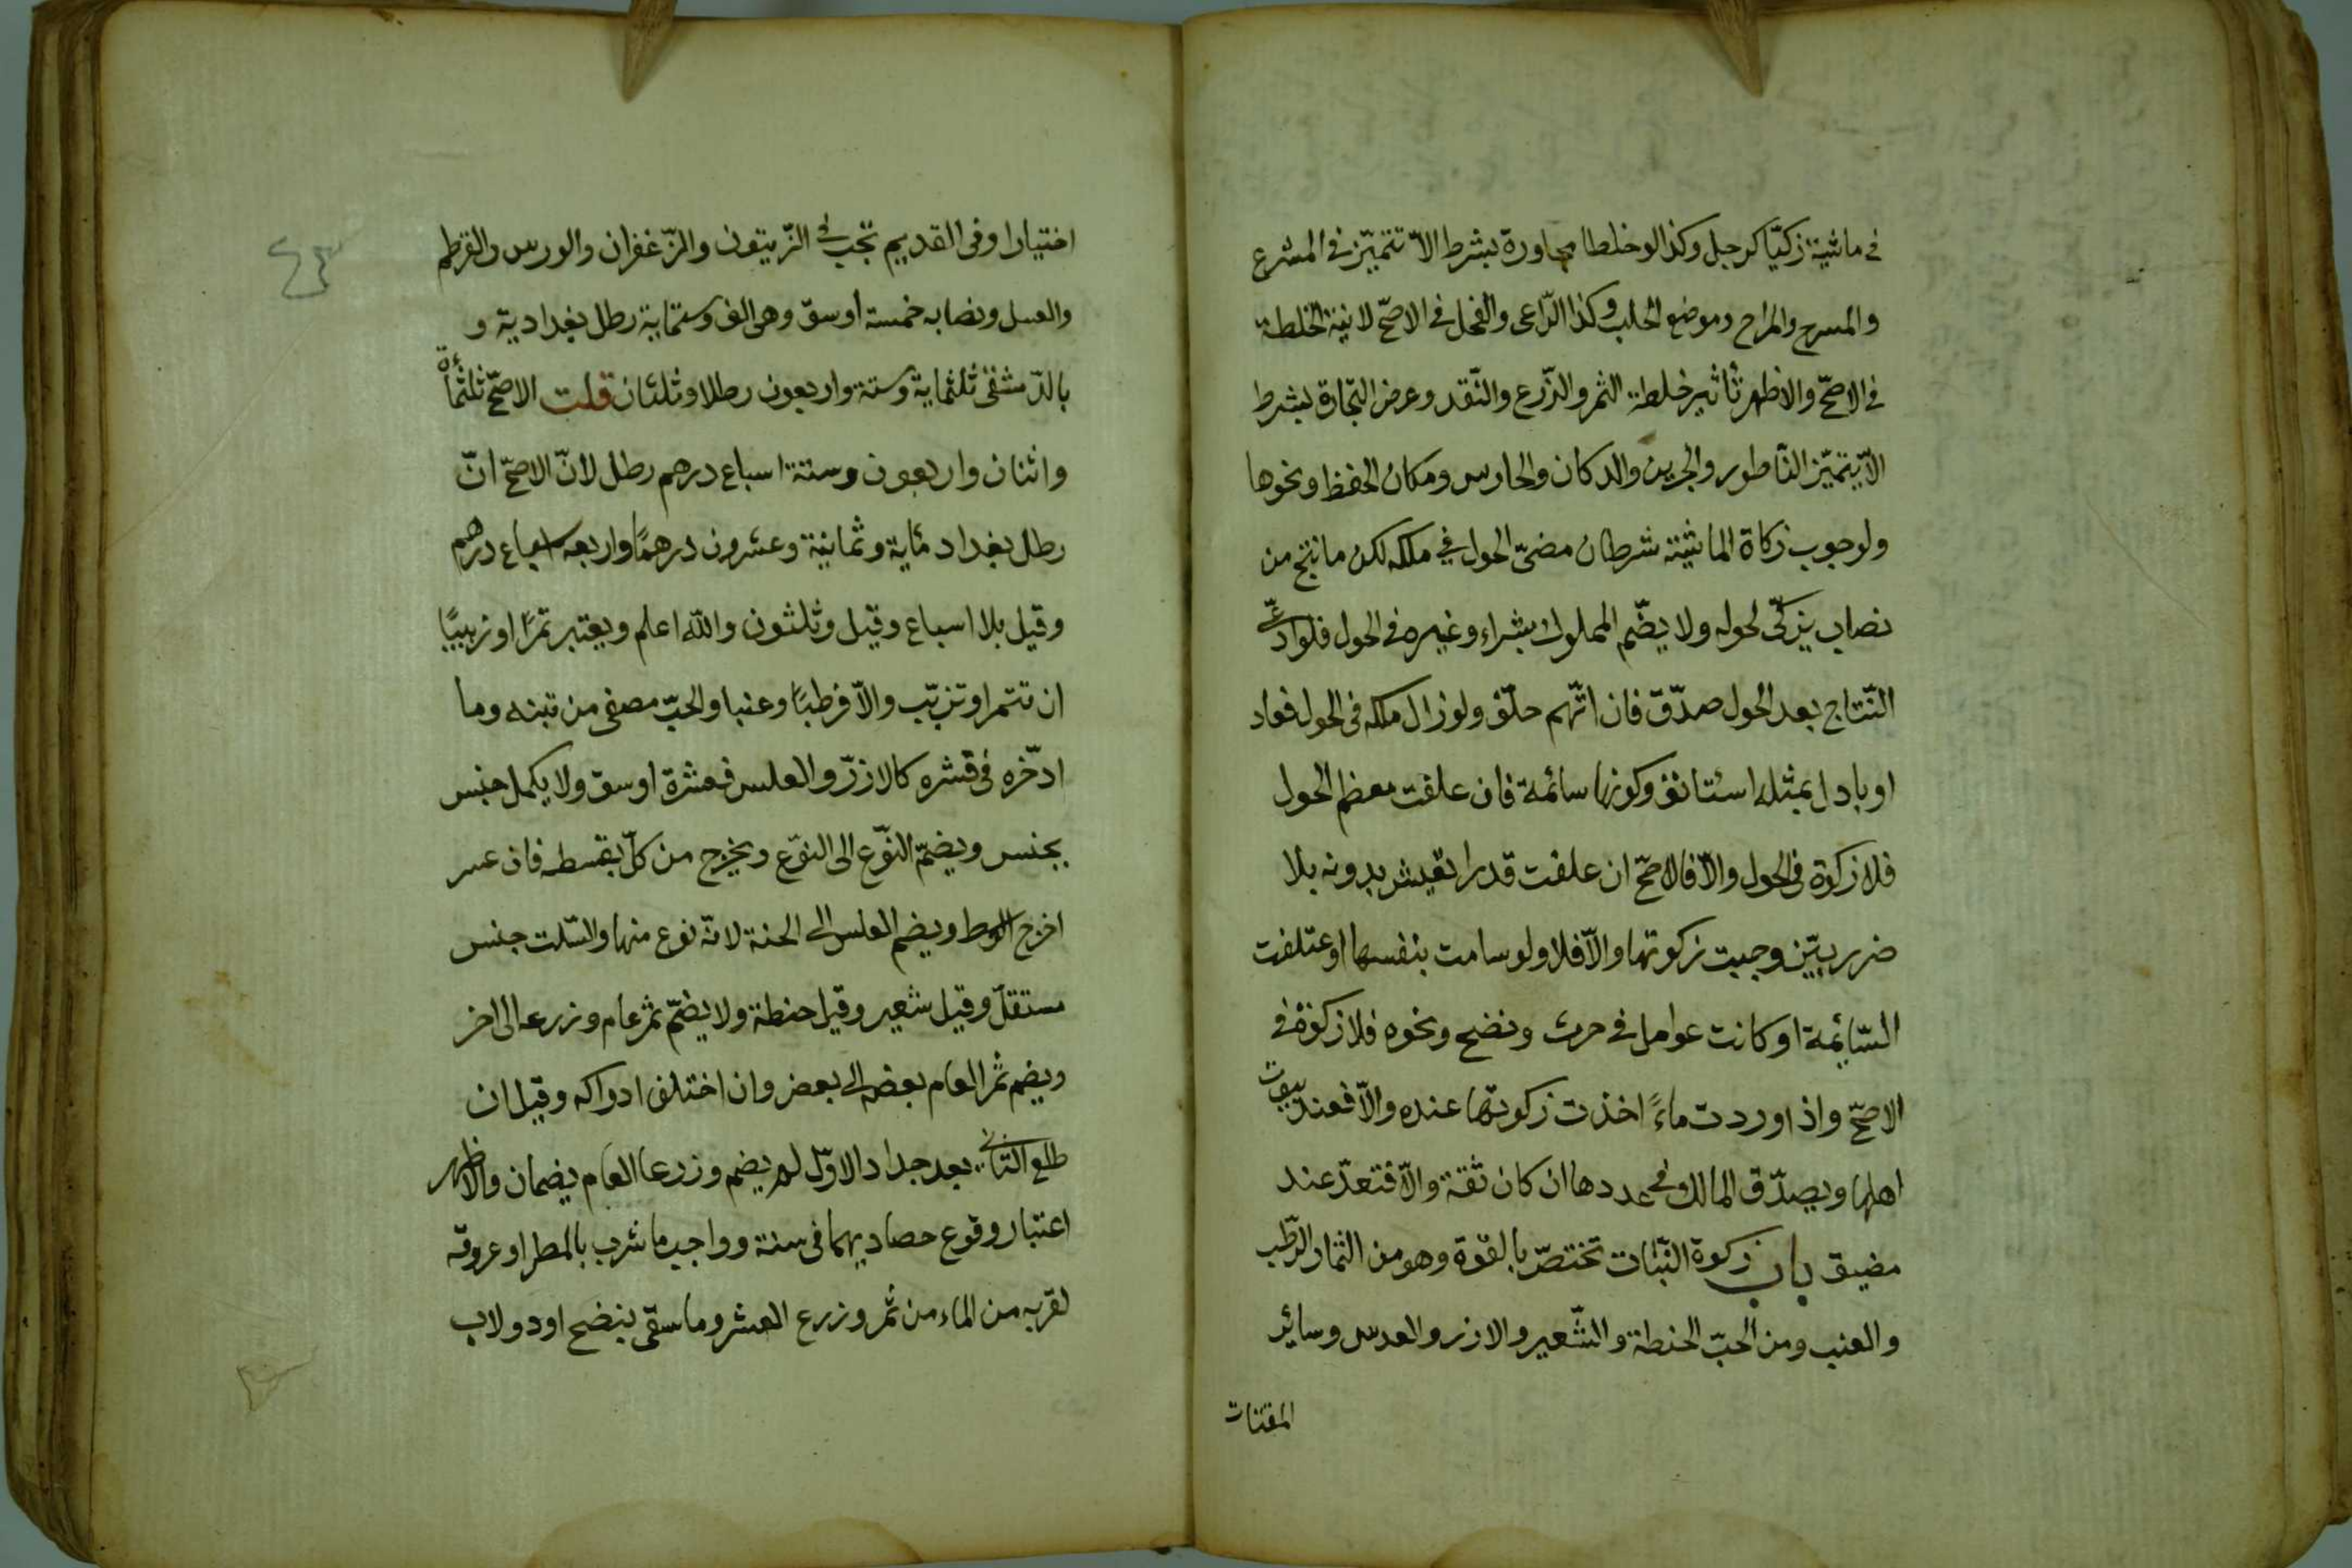 في ماشية زكيا كرجل وكذا لو خلطا مجاورة بشرط الا تتميز في المشرع
والمسرح والمراح وموضع الحلب وكذا الراعي والفحل في الاصح لا نية الخلطة
في الاصح والاظهر تأثير خلطة الثمر والزرع والنقد وعرض التجارة بشرط
الا يتميز الناطور والجرين والدكان والحارس ومكان الحفظ ونحوها
ولوجوب زكاة الماشية شرطان مضي الحول في ملكه لكن ما نتج من
نصاب يزكى لحوله ولا يضم المملوك بشراء وغيره في الحول فلو ادعى
النتاج بعد الحول صدق فان اتهم حلف ولو زال ملكه في الحول فعاد
او بادل بمثله استأنف وكونها سائمة فان علفت معظم الحول
فلا زكوة في الحول والا فالاصح ان علفت قدرا تعيش بدونه بلا
ضرر بين وجبت زكوتها والا فلا ولو سامت بنفسها او عتلفت
السائمة او كانت عوامل في حرث ونضح ونحوه فلا زكوة في
الاصح واذا وردت ماءً اخذت زكوتها عنده والا فعند بيوت
اهلها ويصدق المالك في عددها ان كان ثقة والا فتعد عند
مضيق باب زكوة النبات تختص بالقوة وهو من الثمار الرطب
والعنب ومن الحب الحنطة والشعير والارز والعدس وسائر
المقتات
٤٣
اختيارا وفي القديم تجب في الزيتون والزعفران والورس والقرطم
والعسل ونصابه خمسة اوسق وهي الف وستماية رطل بغدادية و
بالدمشقي ثلثماية وستة واربعون رطلا وثلثان قلت الاصح ثلثمأة
واثنان واربعون وستة اسباع درهم رطل لان الاصح ان
رطل بغداد مئاية وثمانية وعشرون درهمًا واربعه اسباع درهم
وقيل بلا اسباع وقيل وثلثون والله اعلم ويعتبر تمرًا او زبيبًا
ان تتمر او تزبب والا فرطبًا وعنبا والحب مصفى من تبنه وما
ادخره في قشره كالارز والعلس فعشرة اوسق ولا يكمل جنس
بجنس ويضم النوع الى النوع ويخرج من كل بقسطه فان عسر
اخرج الوسط ويضم العلس الى الحنة لانه نوع منها والسلت جنس
مستقل وقيل شعير وقيل حنطة ولا يضم ثمر عام وزرعه الى اخر
ويضم ثمر العام بعضه الى بعض وان اختلف ادواكه وقيل ان
طلع الثاني بعد جداد الاول لم يضم وزرعا العام يضمان والاظهر
اعتبار وقوع حصاديهما في سنة وواجب ما شرب بالمطر او عروقه
لقربه من الماء من ثمر وزرع العشر وما سقى بنضح او دولاب